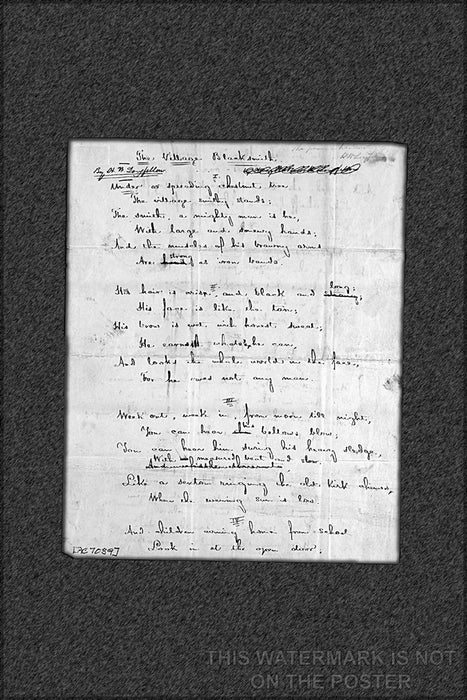 The Village Blacksmith.
By H. W. Longfellow
I
Under a spreading chestnut tree
The village smithy stands;
The smith, a mighty man is he,
With large and sinewy hands;
And the muscles of his brawny arms
strong
Are hard as iron bands.
II
long;
His hair is crisp, and black and
His face is like the tan;
His brow is wet with honest sweat;
He earns whate'er he can,
And looks the whole world in the face,
For he owes not any man.
III
Week out, week in, from morn till night,
You can hear his bellows blow;
You can hear him swing his heavy sledge,
With measured beat and slow,
Like a sexton ringing the old kirk chimes,
When the evening sun is low.
IV
And children coming home from school
Look in at the open door;
THIS WATERMARK IS NOT
ON THE POSTER